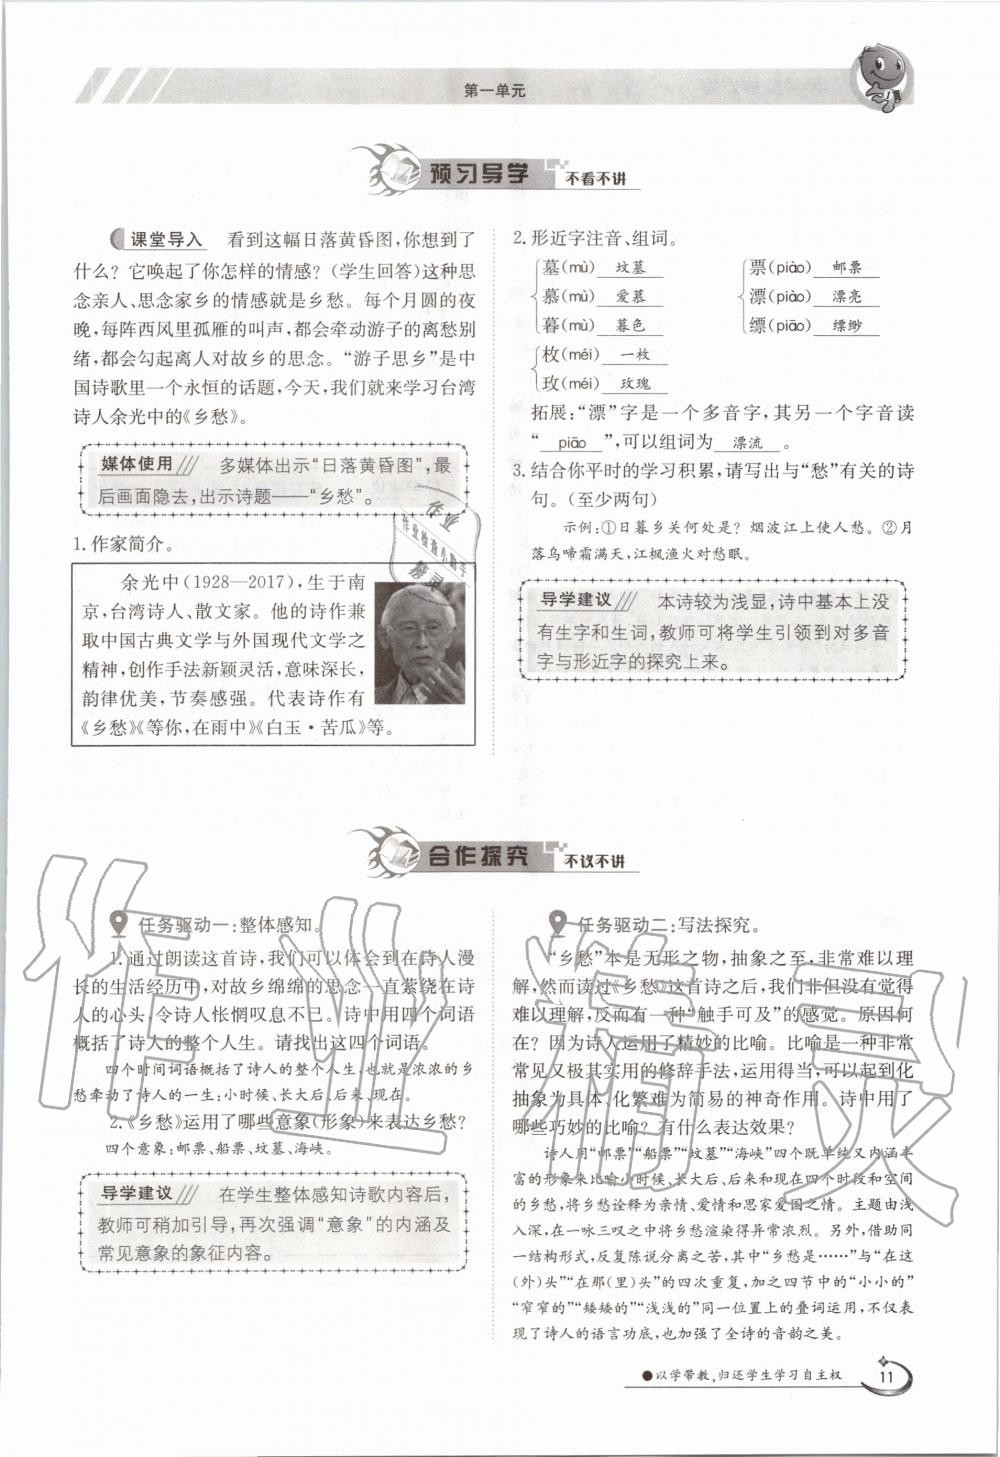 第一单元
预习导学 不看不讲
课堂导入 看到这幅日落黄昏图,你想到了
什么?它唤起了你怎样的情感?(学生回答)这种思
念亲人、思念家乡的情感就是乡愁。每个月圆的夜
晚,每阵西风里孤雁的叫声,都会牵动游子的离愁别
绪,都会勾起离人对故乡的思念。“游子思乡”是中
国诗歌里一个永恒的话题,今天,我们就来学习台湾
诗人余光中的《乡愁》。
媒体使用 多媒体出示“日落黄昏图”,最
后画面隐去,出示诗题——“乡愁”。
1.作家简介。
余光中(1928—2017),生于南
京,台湾诗人、散文家。他的诗作兼
取中国古典文学与外国现代文学之
精神,创作手法新颖灵活,意味深长,
韵律优美,节奏感强。代表诗作有
《乡愁》《等你,在雨中》《白玉·苦瓜》等。
2.形近字注音、组词。
墓(mù) 坟墓 票(piào) 邮票
慕(mù) 爱慕 漂(piào) 漂亮
暮(mù) 暮色 缥(piāo) 缥缈
枚(méi) 一枚
玫(méi) 玫瑰
拓展:“漂”字是一个多音字,其另一个字音读
“ piāo ”,可以组词为 漂流 。
3.结合你平时的学习积累,请写出与“愁”有关的诗
句。(至少两句)
示例:①日暮乡关何处是?烟波江上使人愁。②月
落乌啼霜满天,江枫渔火对愁眠。
导学建议 本诗较为浅显,诗中基本上没
有生字和生词,教师可将学生引领到对多音
字与形近字的探究上来。
合作探究 不议不讲
任务驱动一:整体感知。
1.通过朗读这首诗,我们可以体会到在诗人漫
长的生活经历中,对故乡绵绵的思念一直萦绕在诗
人的心头,令诗人怅惘叹息不已。诗中用四个词语
概括了诗人的整个人生。请找出这四个词语。
四个时间词语概括了诗人的整个人生,也就是浓浓的乡
愁牵动了诗人的一生:小时候、长大后、后来、现在
2.《乡愁》运用了哪些意象(形象)来表达乡愁?
四个意象:邮票、船票、坟墓、海峡。
导学建议 在学生整体感知诗歌内容后,
教师可稍加引导,再次强调“意象”的内涵及
常见意象的象征内容。
任务驱动二:写法探究。
“乡愁”本是无形之物,抽象之至,非常难以理
解,然而读过《乡愁》这首诗之后,我们非但没有觉得
难以理解,反而有一种“触手可及”的感觉。原因何
在?因为诗人运用了精妙的比喻。比喻是一种非常
常见又极其实用的修辞手法,运用得当,可以起到化
抽象为具体、化繁难为简易的神奇作用。诗中用了
哪些巧妙的比喻?有什么表达效果?
诗人用“邮票”“船票”“坟墓”“海峡”四个既单纯又内涵丰
富的形象来比喻小时候、长大后、后来和现在四个时段和空间
的乡愁,将乡愁诠释为亲情、爱情和思家爱国之情。主题由浅
入深,在一咏三叹之中将乡愁渲染得异常浓烈。另外,借助同
一结构形式,反复陈说分离之苦,其中“乡愁是……”与“在这
(外)头”“在那(里)头”的四次重复,加之四节中的“小小的”
“窄窄的”“矮矮的”“浅浅的”同一位置上的叠词运用,不仅表
现了诗人的语言功底,也加强了全诗的音韵之美。
●以学带教,归还学生学习自主权
11
作业精灵